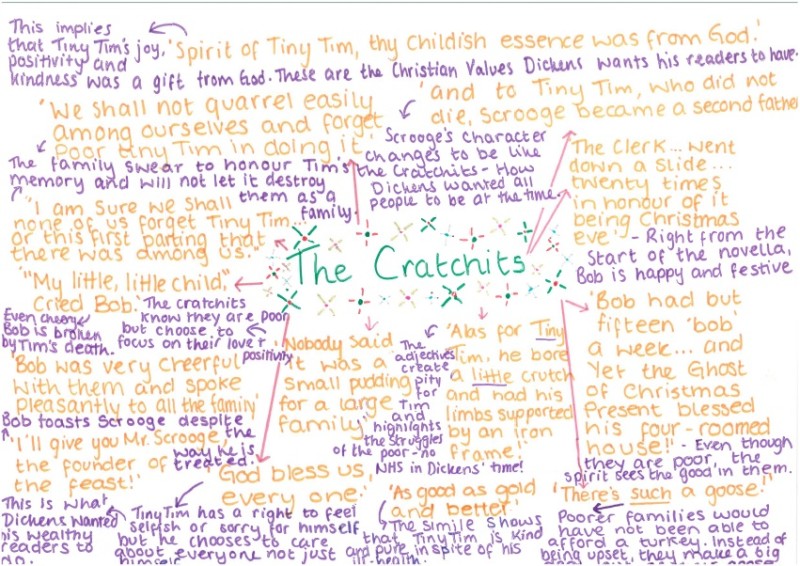 This implies
that Tiny Tim's joy,
positivity and
kindness was a gift from God. These are the Christian Values Dickens wants his readers to have.
'Spirit of Tiny Tim, thy Childish essence was from God.'
'We shall not quarrel easily
among ourselves and forget
poor tiny Tim in doing it.'
The family swear to honour Tim's
memory and will not let it destroy
them as a
family.
'and to Tiny Tim, who did not
die, Scrooge became a second father
Scrooge's character
changes to be like
the Cratchits - How
Dickens wanted all
people to be at the time.
The Clerk... went
down a slide...
twenty times
in honour of it
being Christmas
eve' - Right from the
Start of the novella,
Bob is happy and festive
"I am sure we shall
none of us forget Tiny Tim...
or this first parting that
there was among us."
The Cratchits
"My little, little child"
cried Bob.
Even cheery
Bob is broken
by Tim's death.
The cratchits
know they are poor
but choose to
focus on their love +
positivity
'Bob was very cheerful
with them and spoke
pleasantly to all the family'
Bob toasts Scrooge despite
the
way he is
treated.
'I'll give you Mr. Scrooge,
the founder of
the feast!'
This is what
Dickens wanted
his wealthy
readers to
do.
'Nobody said
it was a
small pudding
for a large
family'
The
adjectives
create
pity
for
Tim
and
highlights
the struggles
of the poor - no
NHS in Dickens' time!
'Alas for Tiny
Tim, he bore
a little crutch
and had his
limbs supported
by an iron
frame!
'Bob had but
fifteen 'bob'
a week... and
yet the Ghost
of Christmas
Present blessed
his four-roomed
house!' - Even though
they are poor, the
spirit sees the good in them.
'God bless us,
every one.'
Tiny Tim has a right to feel
selfish or sorry for himself
but he chooses to care
about everyone not just
himself
'As good as gold
and better'
The simile shows
that Tiny Tim is kind
and pure in spite of his
ill-health.
'There's such a goose!'
Poorer families would
have not been able to
afford a turkey. Instead of
being upset, they make a big